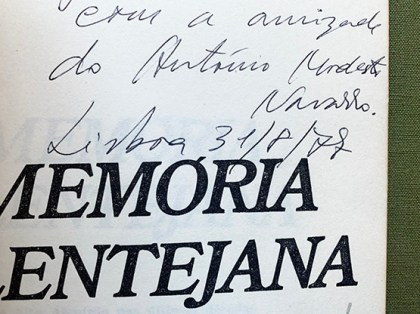 com a amizade
do António Modesto
Navarro.
Lisboa 31/8/78
MEMÓRIA
LENTEJANA